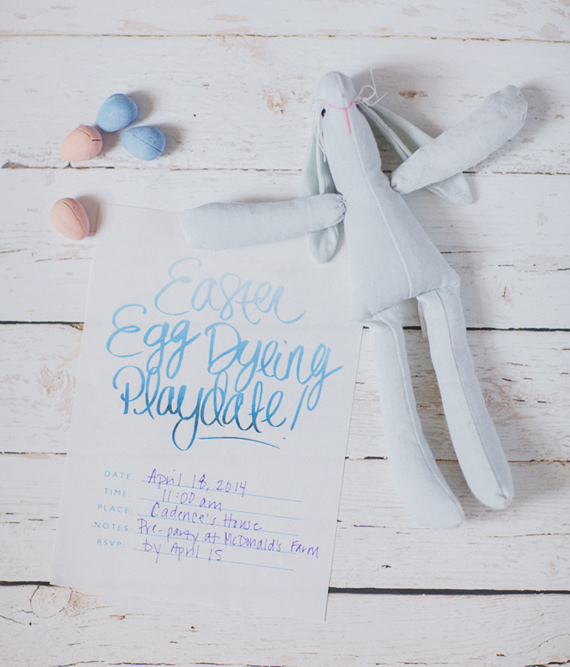 Easter
Egg Dyeing
Playdate!
DATE: April 18, 2014
TIME: 11:00 am
PLACE: Cadence's House
NOTES: Pre-party at McDonald's Farm
RSVP: by April 15